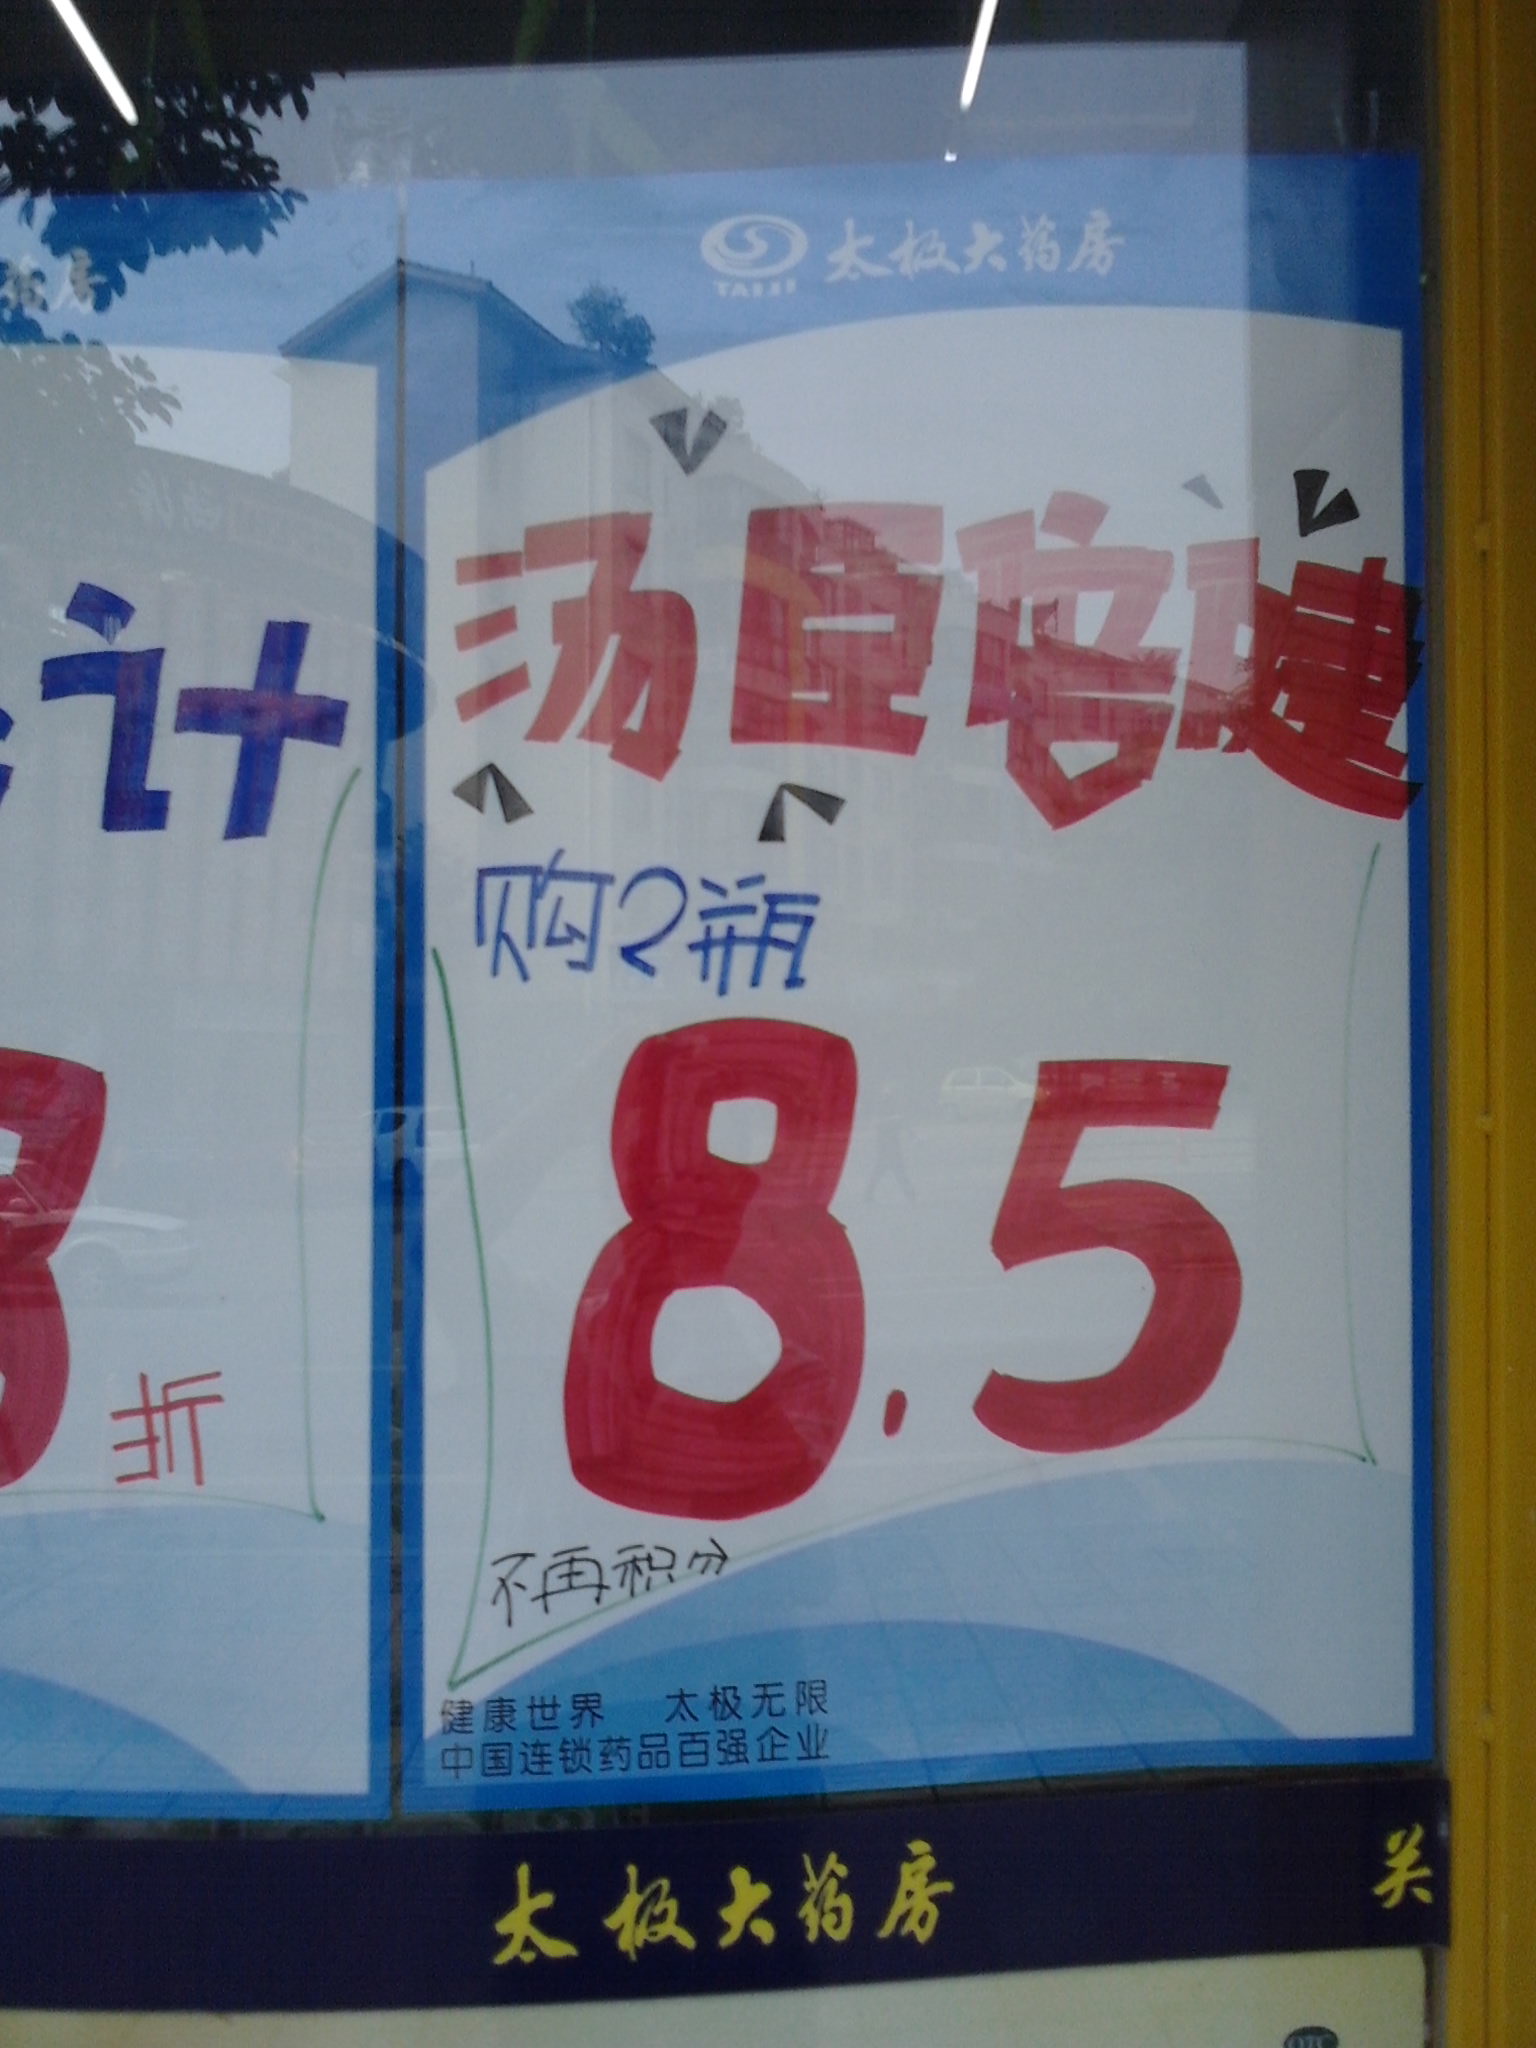 TAIJI 太极大药房
药房
汤臣倍健
计
购2瓶
8.5
8
折
不再积分
健康世界 太极无限
中国连锁药品百强企业
太极大药房
关
OTC